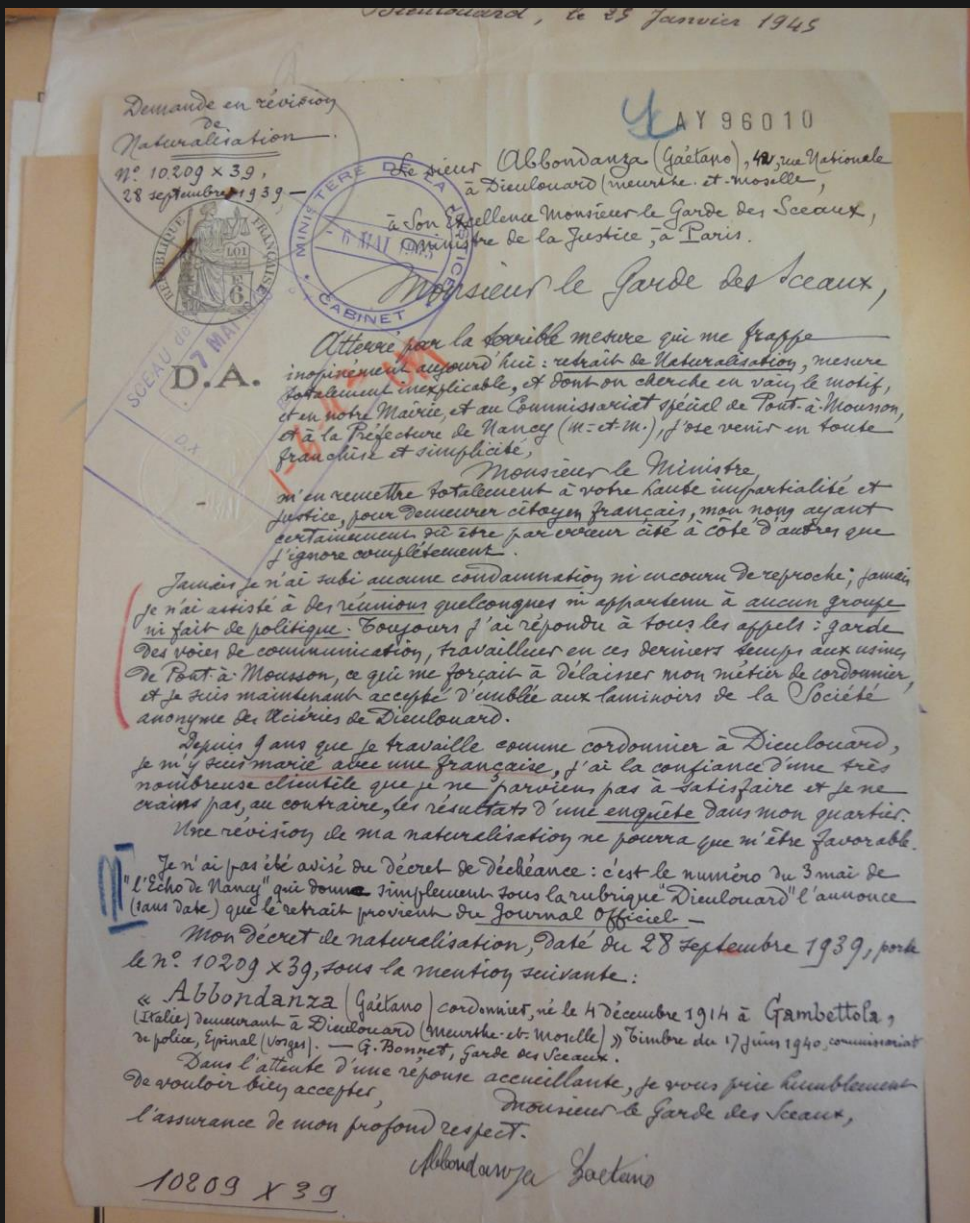 Dieulouard, le 25 Janvier 1945
Demande en révision
de
Naturalisation.
N° 10209 x 39,
28 septembre 1939 —
AY 96010
Le sieur Abbondanza (Gaétano), 42, rue Nationale
à Dieulouard (Meurthe-et-Moselle),
à Son Excellence Monsieur le Garde des Sceaux,
Ministre de la Justice, à Paris.
MINISTÈRE DE LA JUSTICE
6 MAI
CABINET
RÉPUBLIQUE FRANÇAISE
LOI
6
Monsieur le Garde des Sceaux,
SCEAU
7 MAI
D.X
D.A.
Atterré par la terrible mesure qui me frappe
inopinément aujourd'hui : retrait de Naturalisation, mesure
totalement inexplicable, et dont on cherche en vain le motif,
et en notre Mairie, et au Commissariat spécial de Pont-à-Mousson,
et à la Préfecture de Nancy (M=et-M=), j'ose venir en toute
franchise et simplicité,
Monsieur le Ministre,
m'en remettre totalement à votre haute impartialité et
justice, pour demeurer citoyen français, mon nom ayant
certainement dû être par erreur cité à côté d'autres que
j'ignore complètement.
Jamais je n'ai subi aucune condamnation ni encouru de reproche ; jamais
je n'ai assisté à des réunions quelconques ni appartenu à aucun groupe
ni fait de politique. Toujours j'ai répondu à tous les appels : garde
des voies de communication, travailleur en ces derniers temps aux usines
de Pont-à-Mousson, ce qui me forçait à délaisser mon métier de cordonnier,
et je suis maintenant accepté d'emblée aux laminoirs de la Société
anonyme des Aciéries de Dieulouard.
Depuis 9 ans que je travaille comme cordonnier à Dieulouard,
je m'y suis marié avec une française, j'ai la confiance d'une très
nombreuse clientèle que je ne parviens pas à satisfaire et je ne
crains pas, au contraire, les résultats d'une enquête dans mon quartier.
Une révision de ma naturalisation ne pourra que m'être favorable.
Je n'ai pas été avisé du décret de déchéance : c'est le numéro du 3 mai de
"l'Echo de Nancy" qui donne simplement sous la rubrique "Dieulouard" l'annonce
(sans date) que le retrait provient du Journal Officiel —
Mon décret de naturalisation, daté du 28 septembre 1939, porte
le n° 10209 x 39, sous la mention suivante :
« Abbondanza (Gaétano) cordonnier, né le 4 décembre 1914 à Gambettola,
(Italie) demeurant à Dieulouard (Meurthe-et-Moselle) » Timbre du 17 juin 1940, commissariat
de police, Epinal (Vosges). — G. Bonnet, Garde des Sceaux.
Dans l'attente d'une réponse accueillante, je vous prie humblement
de vouloir bien accepter,
Monsieur le Garde des Sceaux,
l'assurance de mon profond respect.
Abbondanza Gaetano
10209 x 39